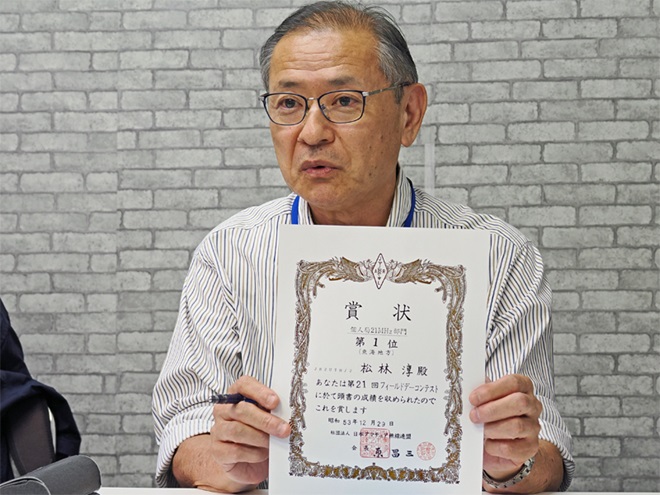 賞状
個人局21MHz部門
第1位
(東海地方)
松林 淳殿
あなたは第21回フィールドデーコンテスト
に於て頭書の成績を収められたので
これを賞します
昭和53年12月29日
社団法人 日本アマチュア無線連盟
会長 原 昌三